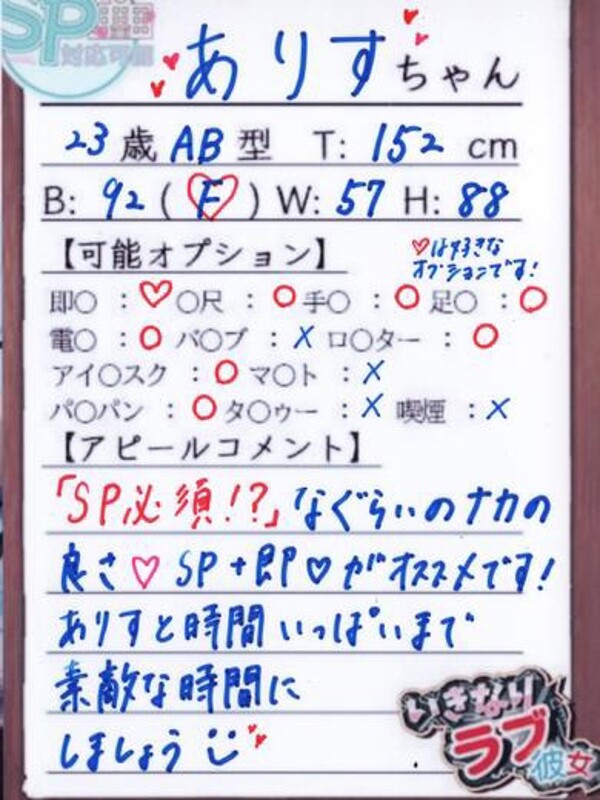 SP
対応可能
ありすちゃん
23歳 AB型 T: 152 cm
B: 92 (F) W: 57 H: 88
【可能オプション】
♡は好きな
オプションです!
即〇 : ♡ 〇尺 : 〇 手〇 : 〇 足〇 : 〇
電〇 : 〇 バ〇ブ : × ロ〇ター : 〇
アイ〇スク : 〇 マ〇ト : ×
パ〇パン : 〇 タ〇ゥー : × 喫煙 : ×
【アピールコメント】
「SP必須!?」なぐらいのナカの
良さ♡ SP+即♡がオススメです!
ありすと時間いっぱいまで
素敵な時間に
しましょう
いきなり
ラブ彼女